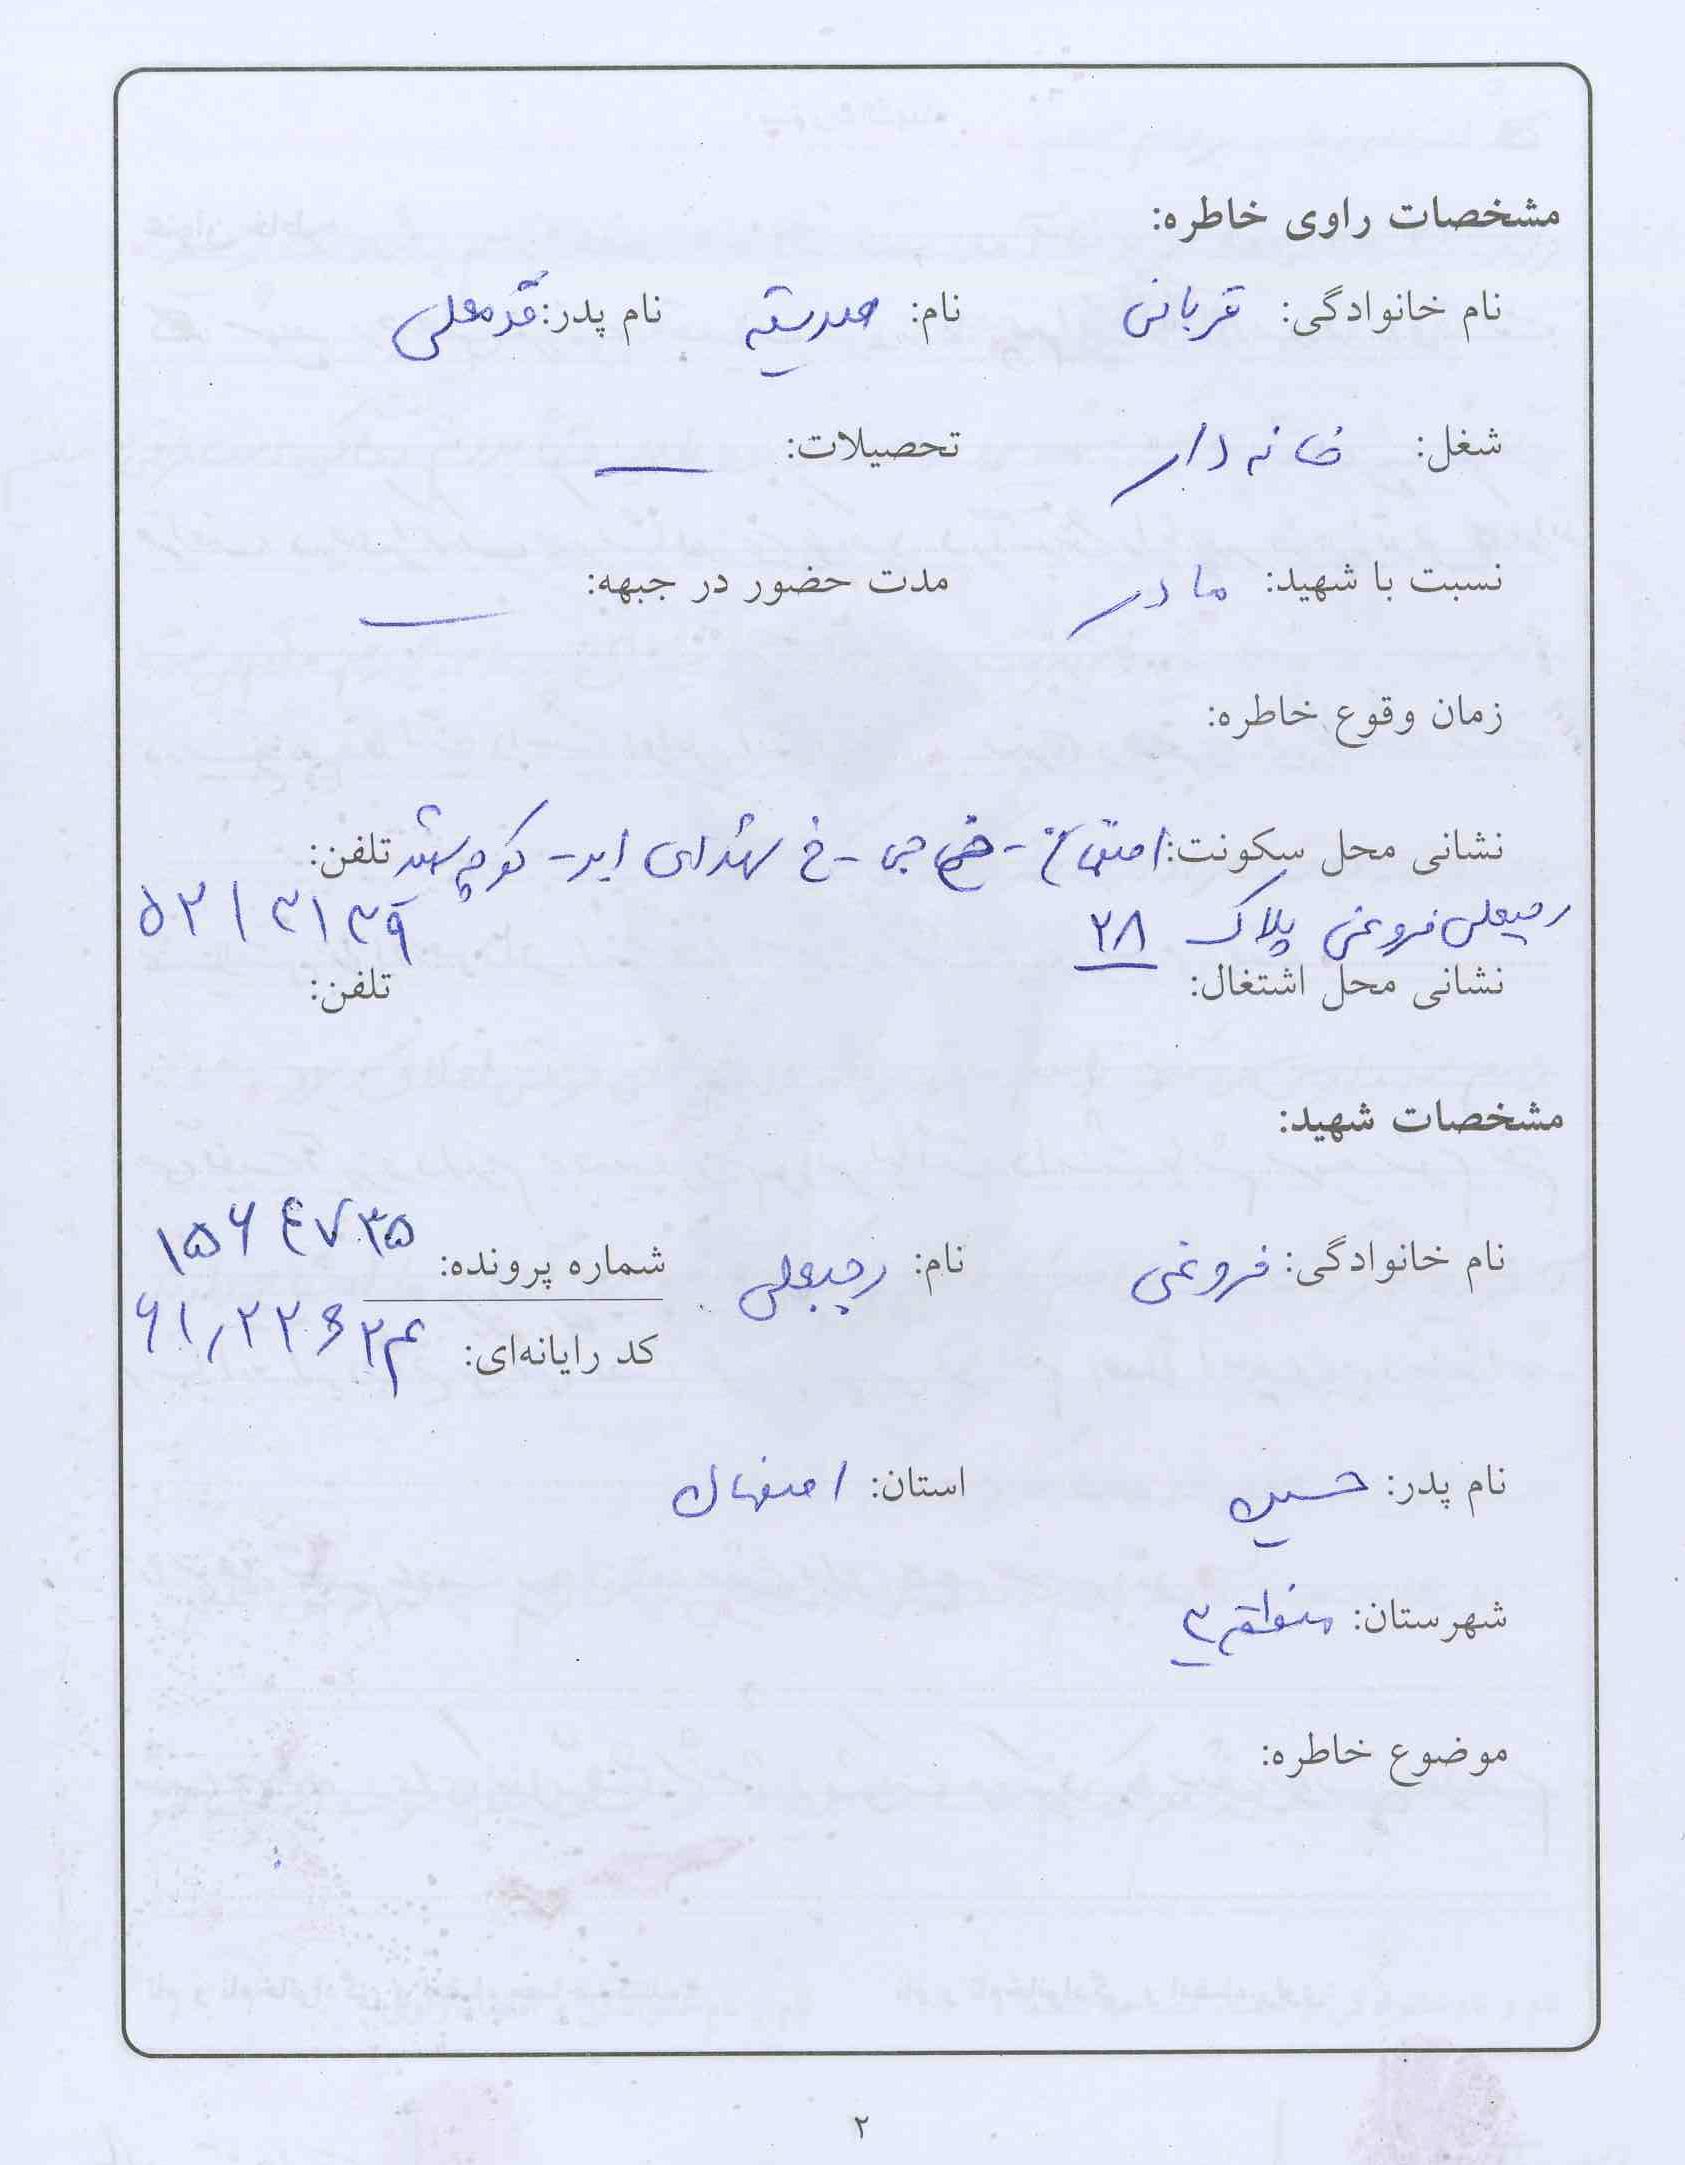 مشخصات راوی خاطره:
نام خانوادگی: قربانی نام: صدیقه نام پدر: قدمعلی
شغل: خانه دار تحصیلات: —
نسبت با شهید: مادر مدت حضور در جبهه: —
زمان وقوع خاطره:
نشانی محل سکونت: اصفهان - خ جی - خ شهدای ابر - کوچه شهید تلفن:
رجبعلی فروغی پلاک ۲۸ ۵۲۱۳۱۳۹
نشانی محل اشتغال: تلفن:
مشخصات شهید:
نام خانوادگی: فروغی نام: رجبعلی شماره پرونده: ۱۵۶۴۷۳۵
کد رایانه‌ای:
نام پدر: حسین استان: اصفهان
شهرستان: منطقه ۳
موضوع خاطره:
۲